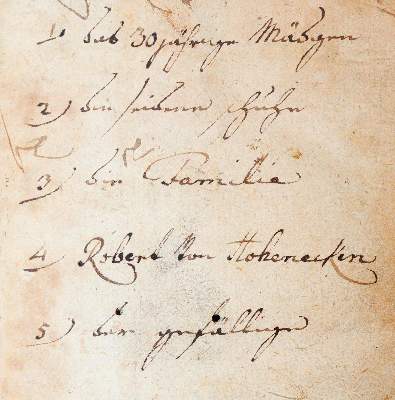 1) das 30jährige Mädgen
2) die seidene Schuhe
3) die Familie
4) Robert von Hohenecken
5) der gefällige